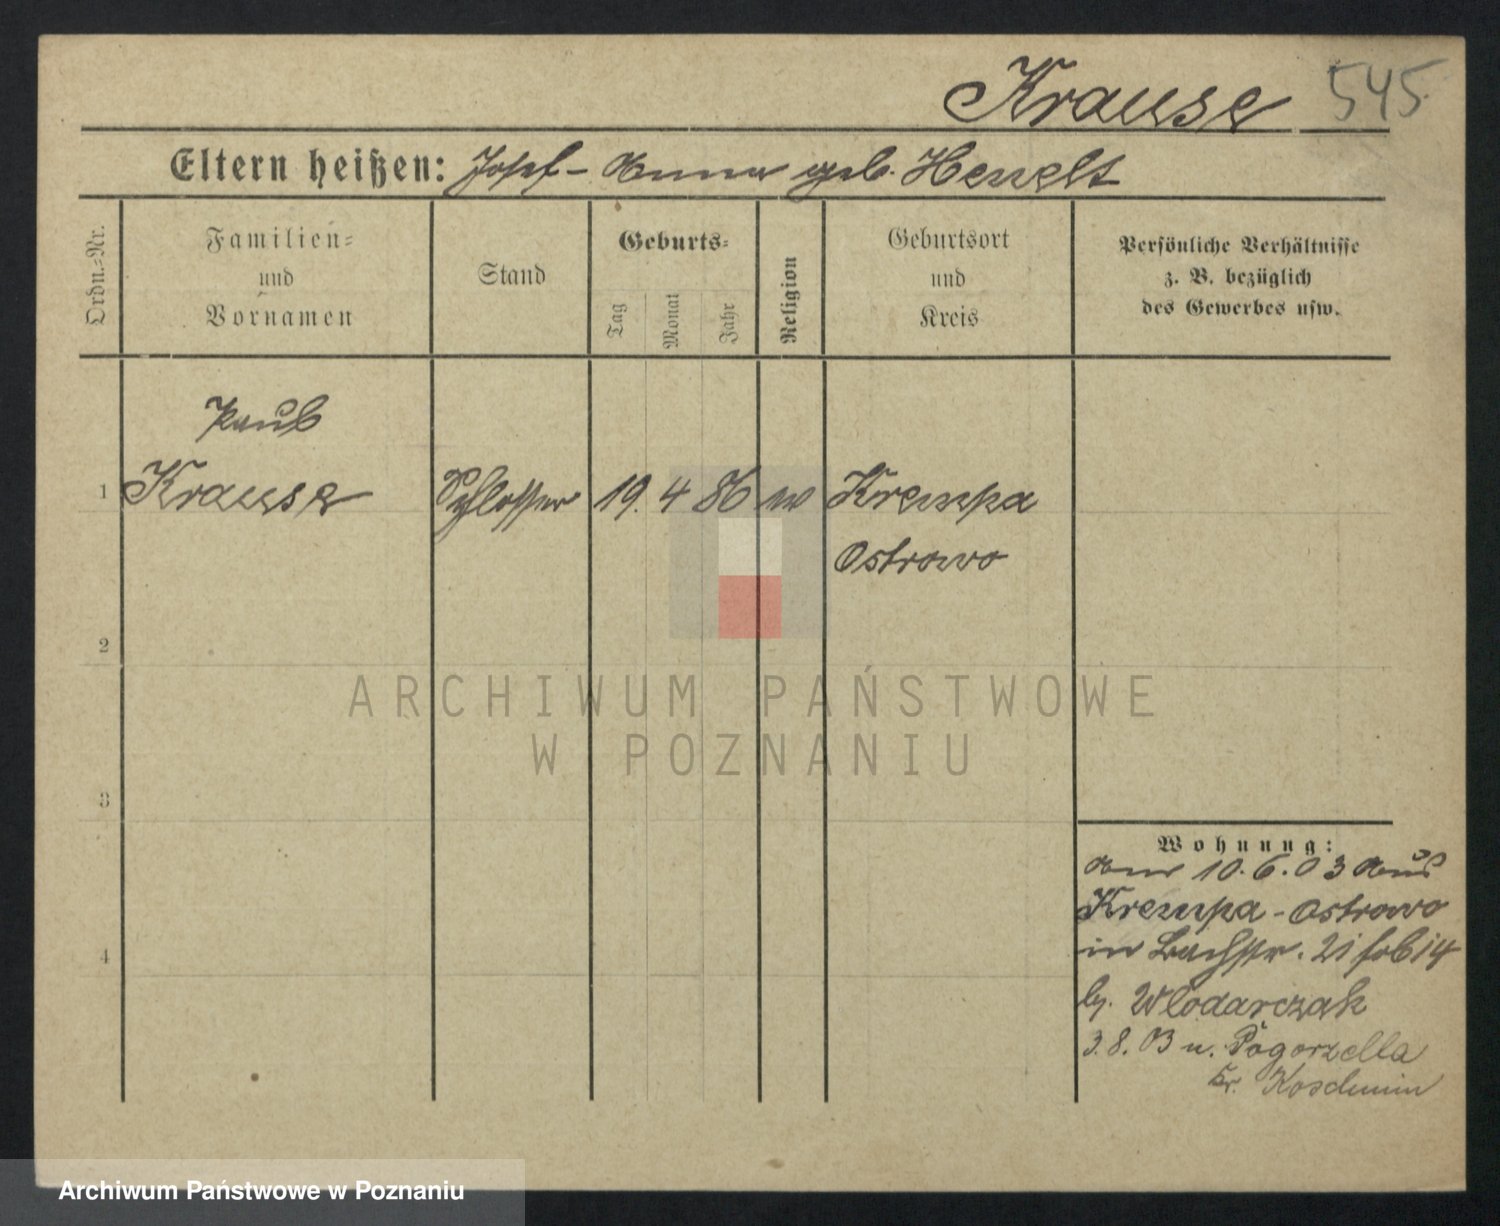 Krause 545.
Eltern heißen: Josef - Anna geb. Henelt
Ordn.-Nr.
Familien-
und
Vornamen
Stand
Geburts-
Tag
Monat
Jahr
Religion
Geburtsort
und
Kreis
Persönliche Verhältnisse
z. B. bezüglich
des Gewerbes usw.
Paul
1 Krause Schlosser 19. 4 86 Krempa
Ostrowo
2
3
4
Wohnung:
10.6.03 aus
Krempa - Ostrowo
in Bachstr. 21
by. Wlodarczak
3.8.03 n. Pogorzella
Kr. Koschmin
ARCHIWUM PAŃSTWOWE
W POZNANIU
Archiwum Państwowe w Poznaniu